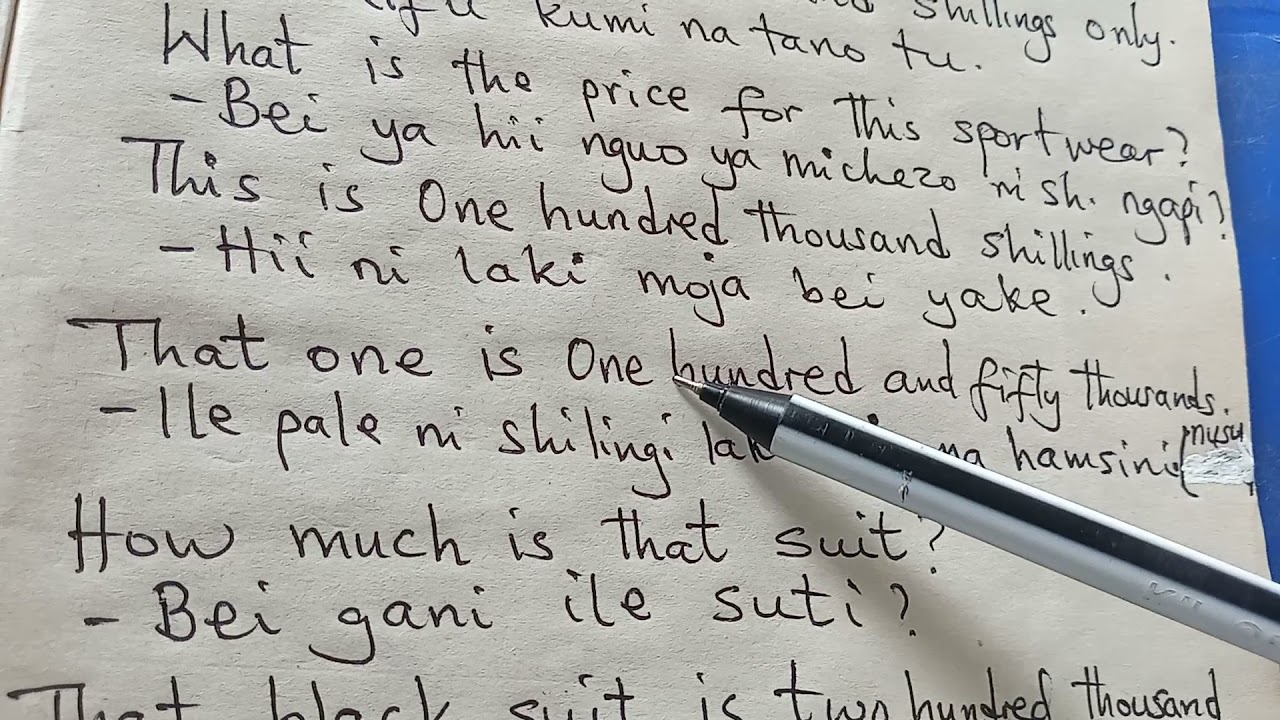 shillings only.
kumi na tano tu.
What is the price for this sportwear?
- Bei ya hii nguo ya michezo ni sh. ngapi?
This is One hundred thousand shillings.
- Hii ni laki moja bei yake.
That one is One hundred and fifty thousands.
- Ile pale ni shilingi na hamsini (nusu
How much is that suit?
- Bei gani ile suti?
That black suit is two hundred thousand